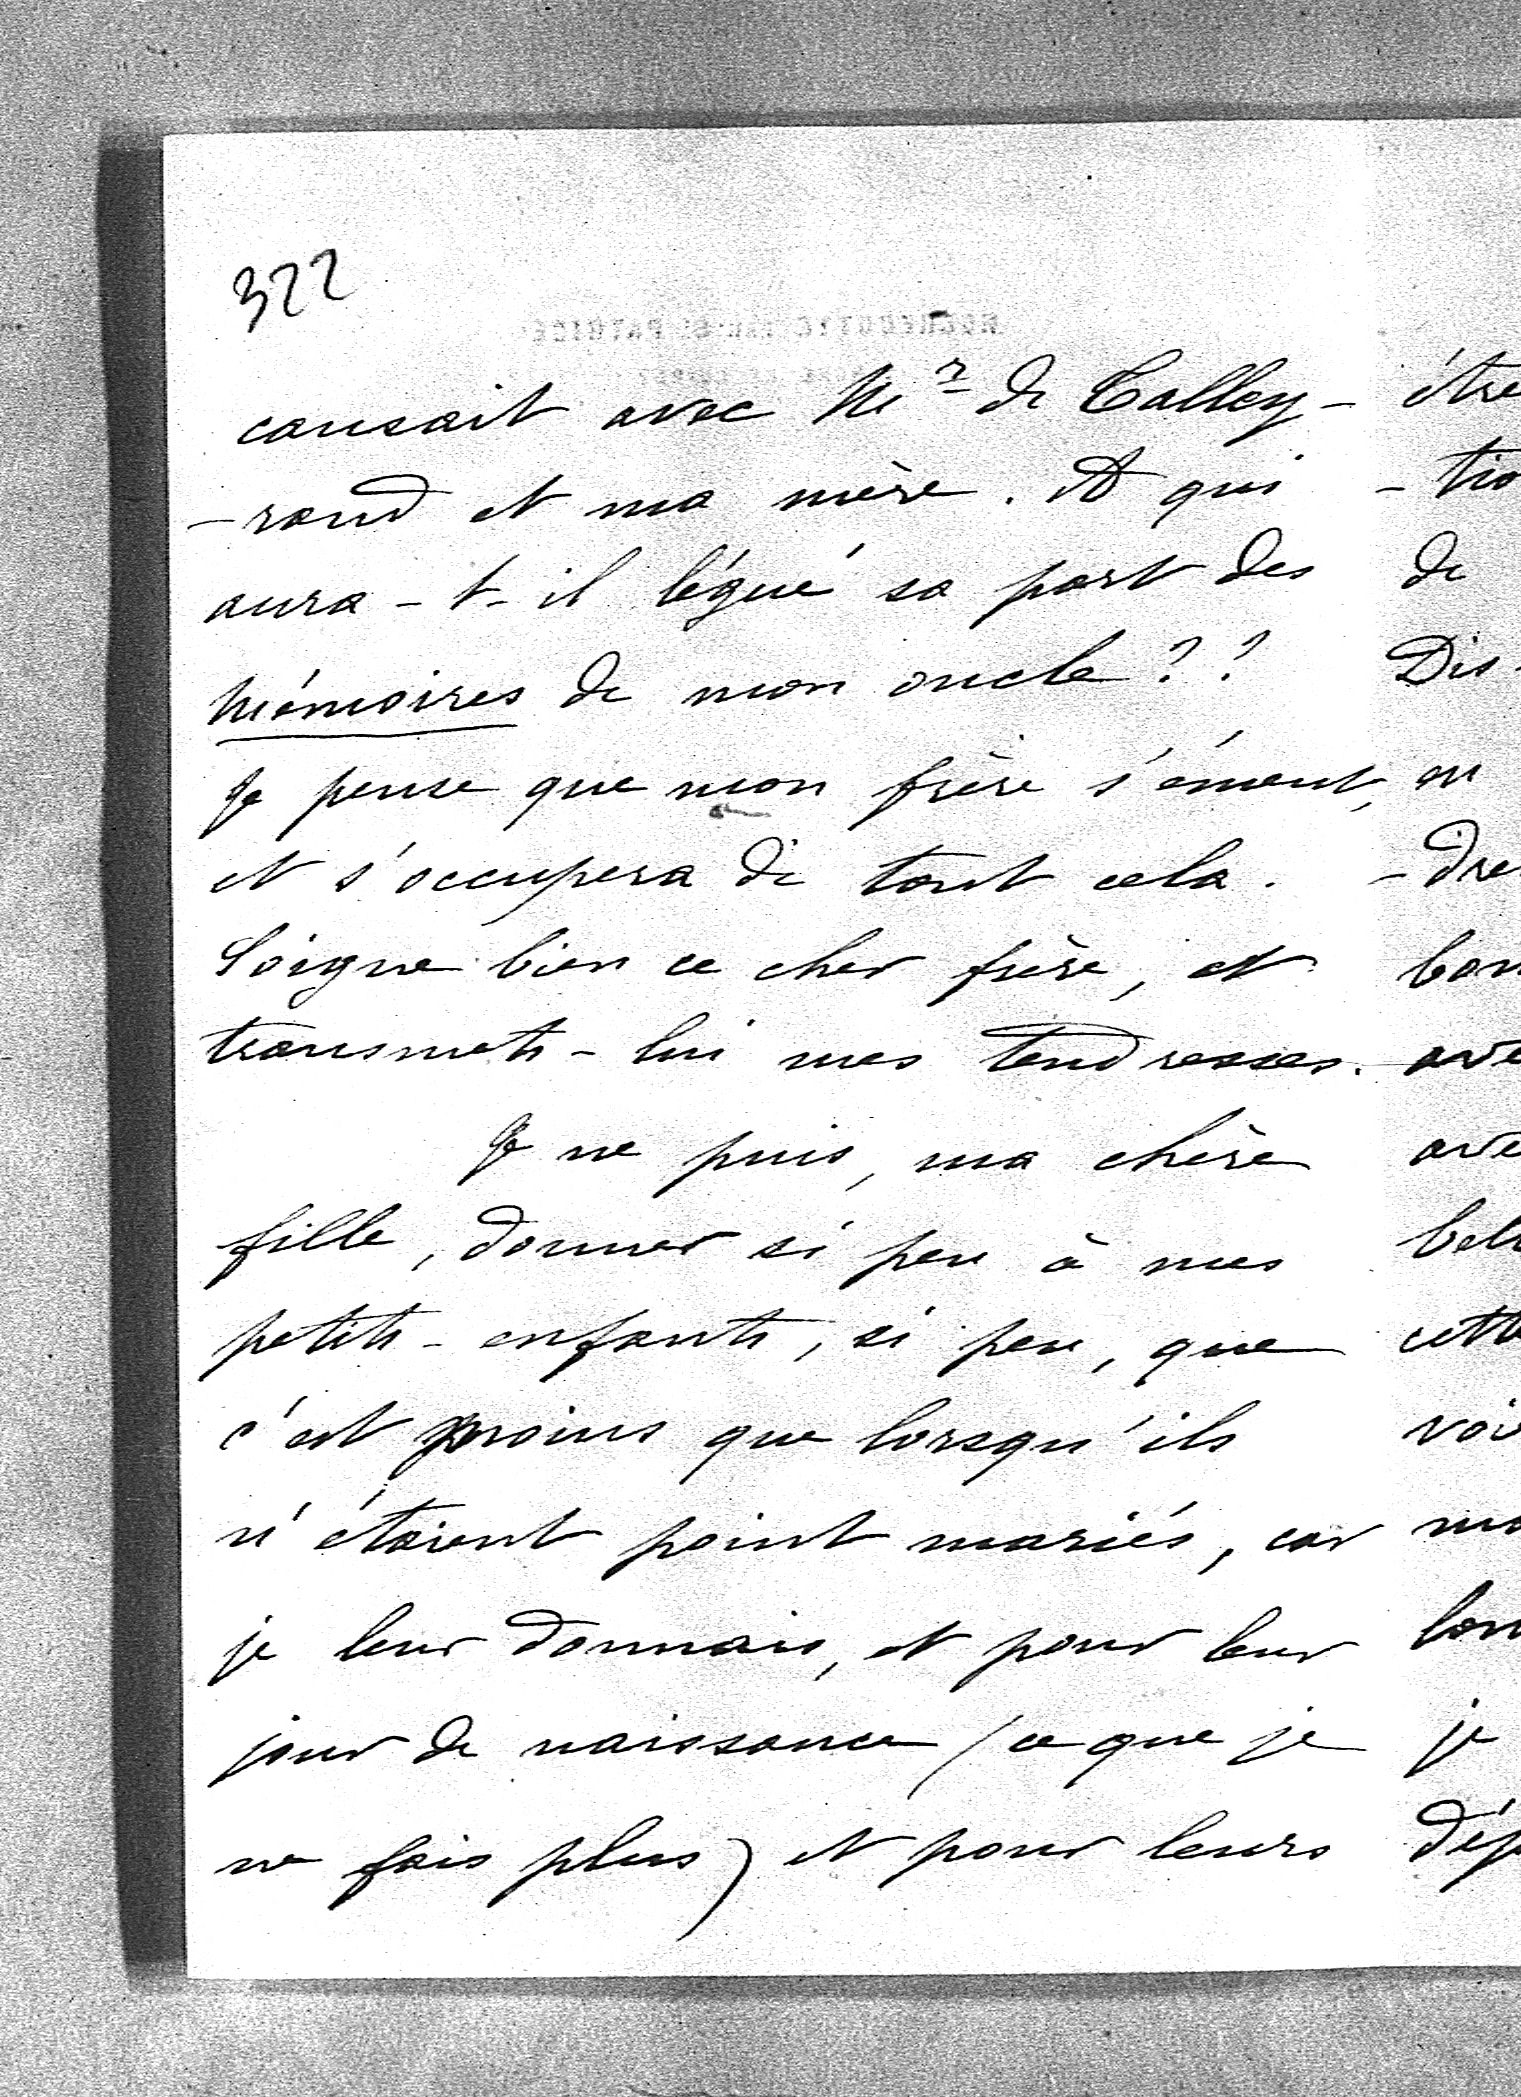 322
causait avec Mr de Talley-
-rand et ma mère. A qui
aura-t-il légué sa part des
Mémoires de mon oncle ??
Je pense que mon frère s'émeut,
et s'occupera de tout cela.
Soigne bien ce cher frère, et
transmets-lui mes tendresses.
Je ne puis, ma chère
fille, donner si peu à mes
petits-enfants, si peu, que
c'est moins que lorsqu'ils
n'étaient point mariés, car
je leur donnais, et pour leur
jour de naissance (ce que je
ne fais plus) et pour leurs
être
-tio
de
Dis-
en
-dre
bon
ave
ave
bel
cette
voi
ma
lon
je
dép